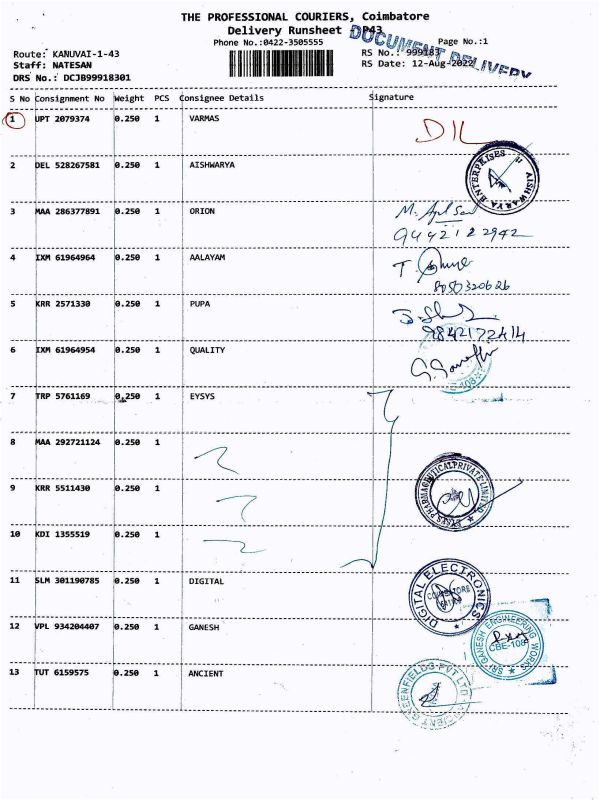 THE PROFESSIONAL COURIERS, Coimbatore
Delivery Runsheet - P43
DOCUMENT DELIVERY
Phone No.:0422-3505555 Page No.:1
Route: KANUVAI-1-43 RS No.: 999183
Staff: NATESAN RS Date: 12-Aug-2022
DRS No.: DCJB99918301
S No Consignment No Weight PCS Consignee Details Signature
1 UPT 2079374 0.250 1 VARMAS
DIL
2 DEL 528267581 0.250 1 AISHWARYA
AISHWARYA ENTERPRISES
3 MAA 286377891 0.250 1 ORION
9442182942
4 IXM 61964964 0.250 1 AALAYAM
8050320626
5 KRR 2571330 0.250 1 PUPA
9842172414
6 IXM 61964954 0.250 1 QUALITY
7 TRP 5761169 0.250 1 EYSYS
8 MAA 292721124 0.250 1
PHARMACEUTICAL PRIVATE LIMITED
9 KRR 5511430 0.250 1
10 KDI 1355519 0.250 1
11 SLM 301190785 0.250 1 DIGITAL
DIGITAL ELECTRONICS
12 VPL 934204407 0.250 1 GANESH
SRI GANESH ENGINEERING WORKS
CBE-108
13 TUT 6159575 0.250 1 ANCIENT
ANCIENT GREENFIELDS PVT LTD